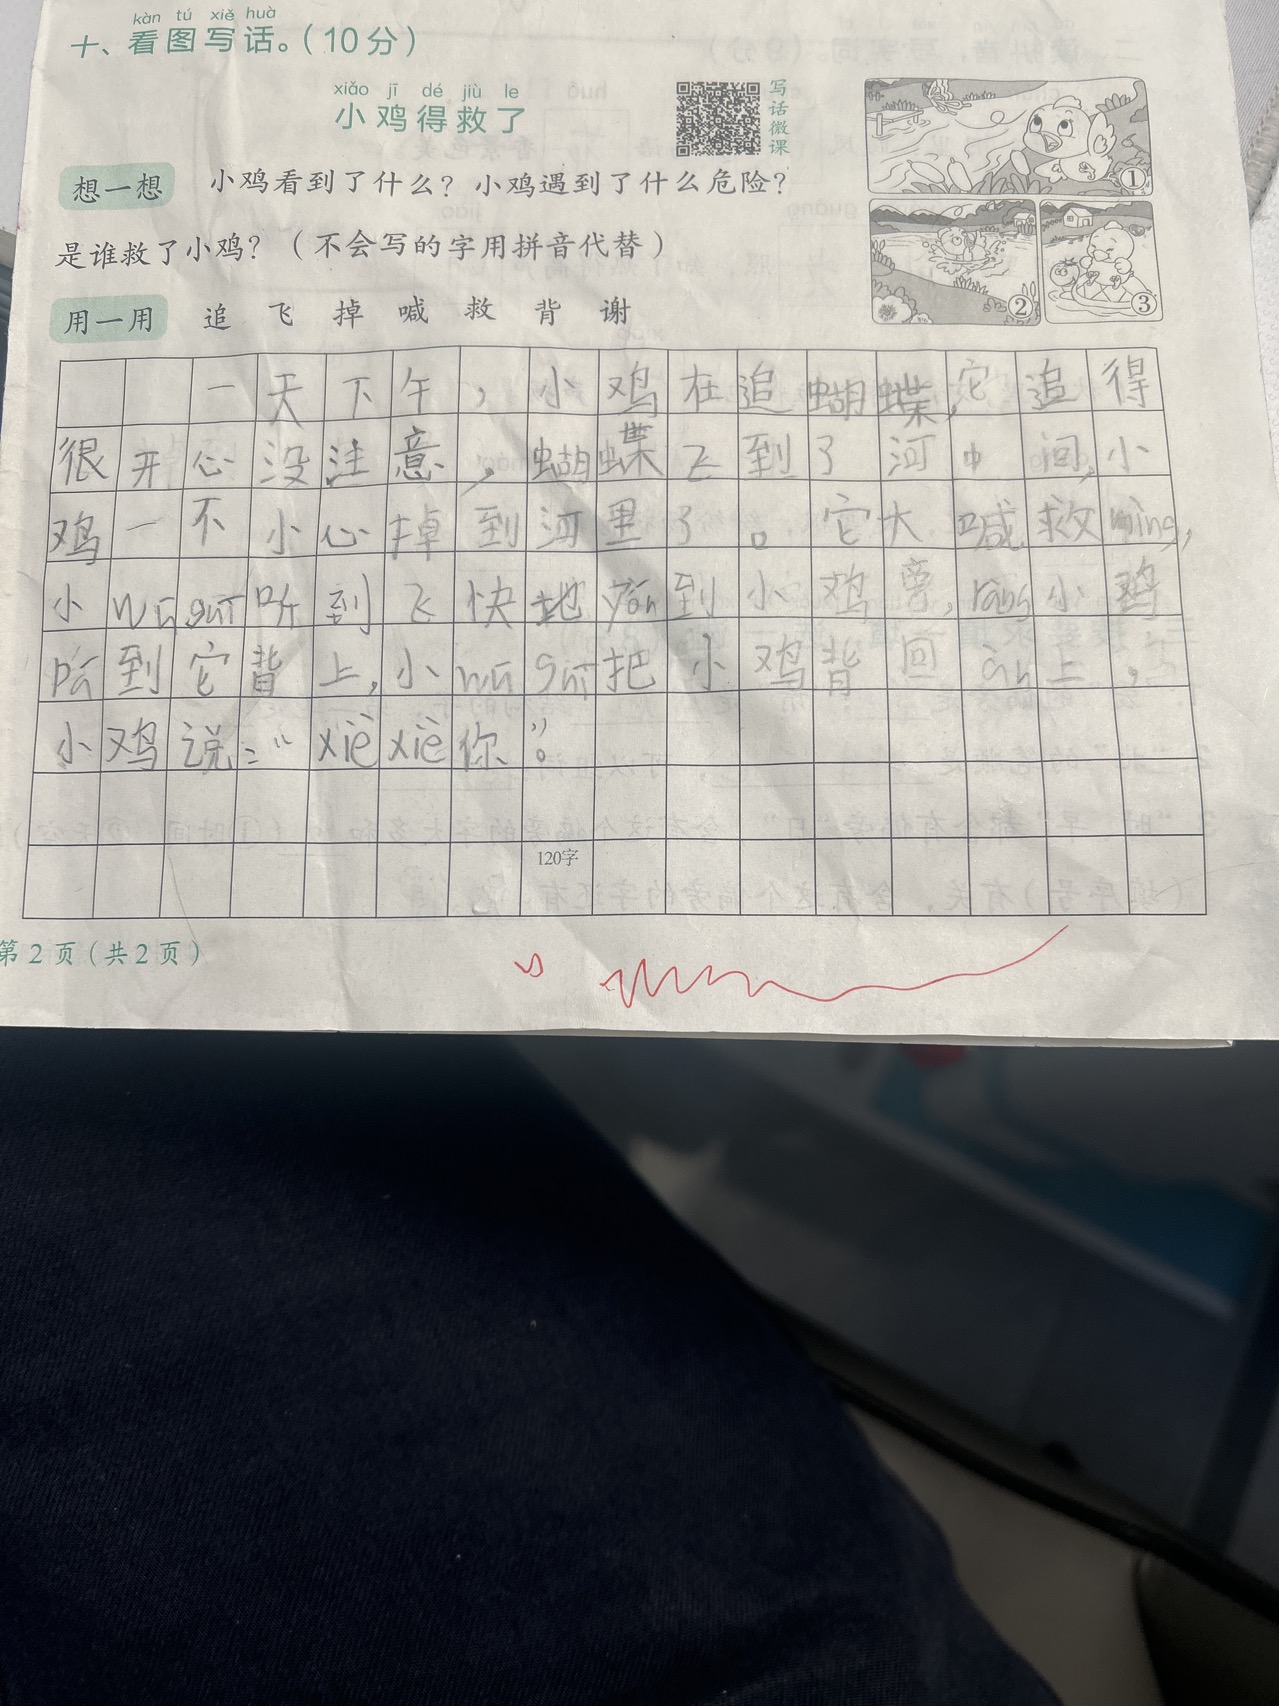 kàn tú xiě huà
十、看图写话。(10分)
xiǎo jī dé jiù le
小鸡得救了
写话微课
想一想 小鸡看到了什么？小鸡遇到了什么危险？
是谁救了小鸡？（不会写的字用拼音代替）
用一用 追 飞 掉 喊 救 背 谢
① ② ③
一天下午，小鸡在追蝴蝶，它追得
很开心没注意，蝴蝶飞到了河中间，小
鸡一不小心掉到河里了。它大喊救mìng，
小wū guī听到飞快地yóu到小鸡旁，ràng小鸡
pá到它背上，小wū guī把小鸡背回àn上，
小鸡说：“xiè xiè你”。
120字
第2页(共2页)